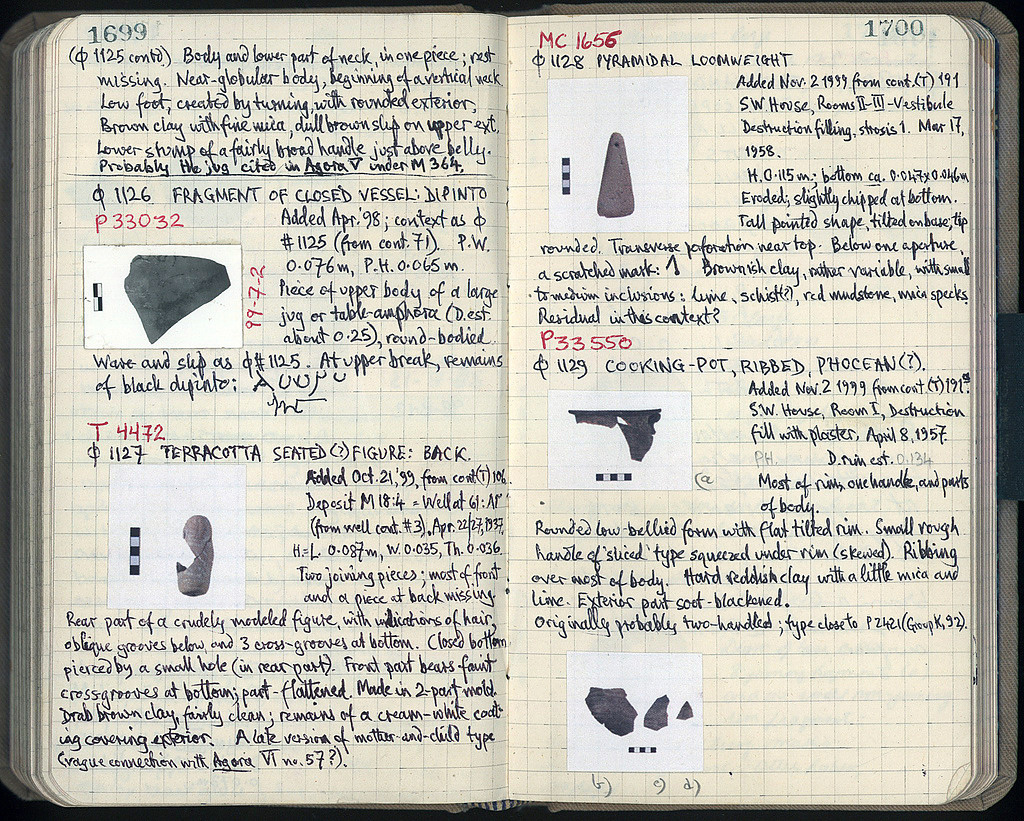 1699
(ϕ 1125 contd) Body and lower part of neck, in one piece; rest
missing. Near-globular body, beginning of a vertical neck
Low foot, created by turning, with rounded exterior,
Brown clay with fine mica, dull brown slip on upper ext.
Lower stump of a fairly broad handle just above belly.
Probably the jug cited in Agora V under M 364.
ϕ 1126 FRAGMENT OF CLOSED VESSEL: DIPINTO
P 33032
Added Apr. '98; context as ϕ
#1125 (from cont. 71). P.W.
0.076m, P.H. 0.065m.
99-7-2
Piece of upper body of a large
jug or table-amphora (D.est.
about 0.25), round-bodied.
Ware and slip as ϕ#1125. At upper break, remains
of black dipinto:
T 4472
ϕ 1127 TERRACOTTA SEATED(?) FIGURE: BACK.
Added Oct. 21, '99, from cont.(T) 106
Deposit M 18:4 = Well at 61:
(from well cont. #3). Apr. 22/27, 1937.
H=L 0.087m, W. 0.035, Th. 0.036.
Two joining pieces; most of front
and a piece at back missing.
Rear part of a crudely modeled figure, with indications of hair,
oblique grooves below, and 3 cross-grooves at bottom. Closed bottom
pierced by a small hole (in rear part). Front part bears faint
cross-grooves at bottom; part-flattened. Made in 2-part mold.
Drab brown clay, fairly clean; remains of a cream-white coat-
ing covering exterior. A late version of mother-and-child type
(vague connection with Agora VI no. 57?).
1700
MC 1656
ϕ 1128 PYRAMIDAL LOOMWEIGHT
Added Nov. 2 1999 from cont.(T) 191
S W House, Rooms II-III-Vestibule
Destruction filling, strosis 1. Mar 17,
1958.
H. 0.115m; bottom ca. 0.047x0.046m
Eroded; slightly chipped at bottom.
Tall pointed shape, tilted on base; tip
rounded. Transverse perforation near top. Below one aperture,
a scratched mark: Brownish clay, rather variable, with small
to medium inclusions: lime, schist(?), red mudstone, mica specks
Residual in this context?
P33550
ϕ 1129 COOKING-POT, RIBBED, PHOCEAN(?).
Added Nov. 2 1999 from cont (T) 191
S.W. House, Room I, Destruction
fill with plaster, April 8, 1957.
P.H. D. rim est. 0.134
(a
Most of rim, one handle, and parts
of body.
Rounded low-bellied form with flat tilted rim. Small rough
handle of 'sliced' type squeezed under rim (skewed). Ribbing
over most of body. Hard reddish clay with a little mica and
lime. Exterior part soot-blackened.
Originally probably two-handled; type close to P 2421 (Group K, 92).
b) c) d)